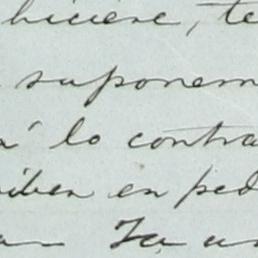 hiciere, te
suponem
lo contra
iben en ped
Ya un